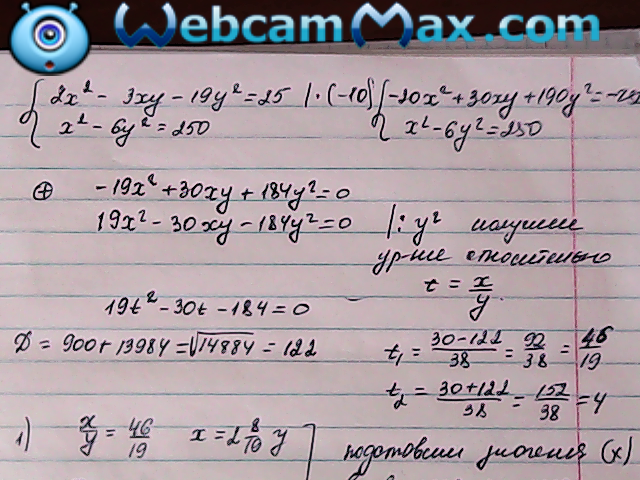 WebcamMax.com
{ 2x² - 3xy - 19y² = 25 | · (-10) { -20x² + 30xy + 190y² = -250
x² - 6y² = 250 x² - 6y² = 250
⊕ -19x² + 30xy + 184y² = 0
19x² - 30xy - 184y² = 0 |: y² получим
ур-ние относительно
t = x/y.
19t² - 30t - 184 = 0
D = 900 + 13984 = √14884 = 122 t₁ = (30-122)/38 = 92/38 = 46/19
t₂ = (30+122)/38 = 152/38 = 4
1) x/y = 46/19 x = 2 8/19 y
подставим значения (x)